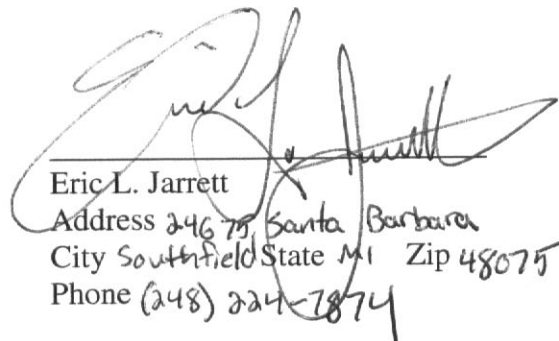 Eric L. Jarrett
Eric L. Jarrett
Address 24675 Santa Barbara
City Southfield State MI Zip 48075
Phone (248) 224-7874